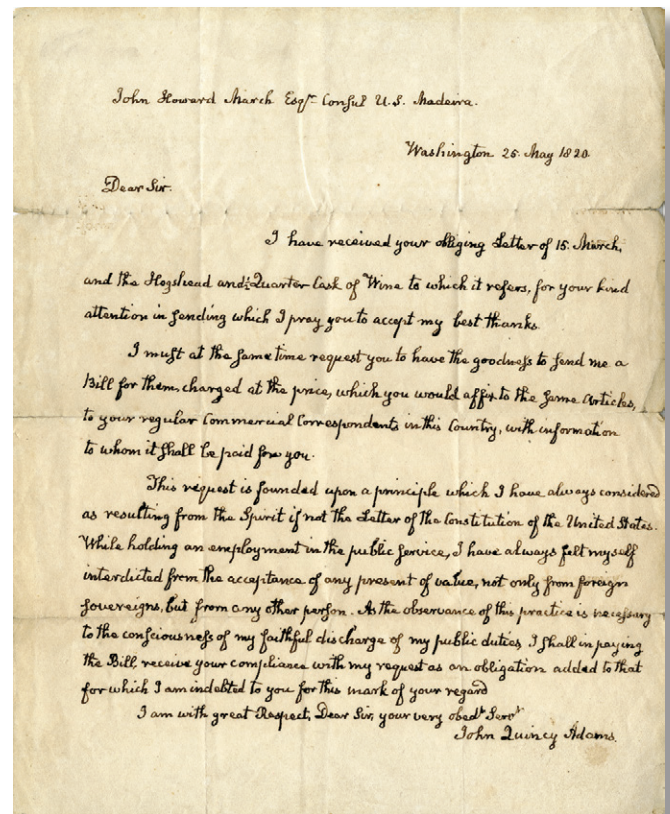 John Howard March Esqr. Consul U.S. Madeira.
Washington 25. May 1820.
Dear Sir.
I have received your obliging Letter of 15. March,
and the Hogshead and Quarter Cask of Wine to which it refers, for your kind
attention in sending which I pray you to accept my best thanks.
I must at the same time request you to have the goodness to send me a
Bill for them, charged at the price, which you would affix to the same Articles,
to your regular Commercial Correspondents in this Country, with information
to whom it shall be paid for you.
This request is founded upon a principle which I have always considered
as resulting from the Spirit if not the Letter of the Constitution of the United States.
While holding an employment in the public service, I have always felt myself
interdicted from the acceptance of any present of value, not only from foreign
sovereigns, but from any other person. As the observance of this practice is necessary
to the consciousness of my faithful discharge of my public duties I shall in paying
the Bill, receive your compliance with my request as an obligation added to that
for which I am indebted to you for this mark of your regard
I am with great Respect, Dear Sir, your very obedt. Servt.
John Quincy Adams.